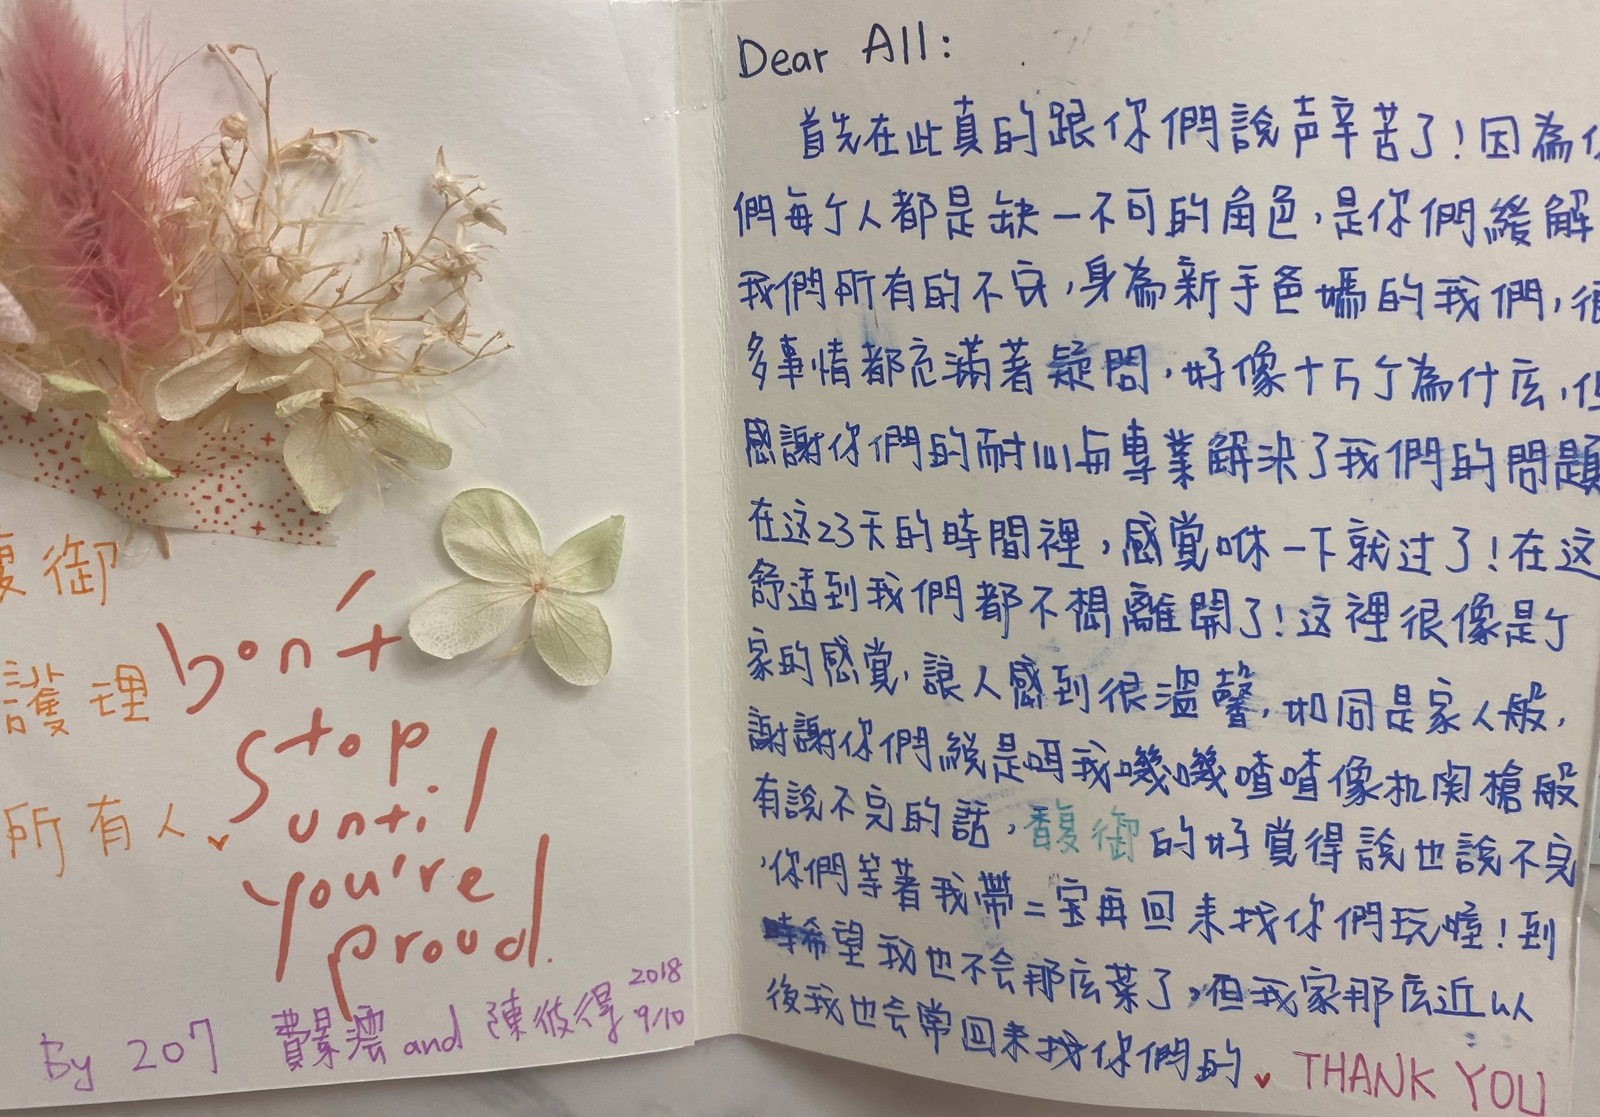 馥御
護理
所有人
Don't
stop
until
you're
proud.
By 207 費景澐 and 陳彼得 2018 9/10
Dear All:
首先在此真的跟你們說声辛苦了!因為
們每个人都是缺一不可的角色,是你們緩解
我們所有的不安,身為新手爸媽的我們,很
多事情都充滿著疑問,好像十万个為什庅,但
感謝你們的耐心与專業解決了我們的問題
在这23天的時間裡,感覺咻一下就过了!在这
舒适到我們都不想離開了!这裡很像是个
家的感覚,讓人感到很溫馨,如同是家人般,
謝謝你們総是唔我嘰嘰喳喳像机関槍般
有說不完的話,馥御的好覚得說也說不完
,你們等著我帶二宝再回来找你們玩喔!到
時希望我也不会那庅菜了,但我家那庅近以
後我也会常回来找你們的 THANK YOU